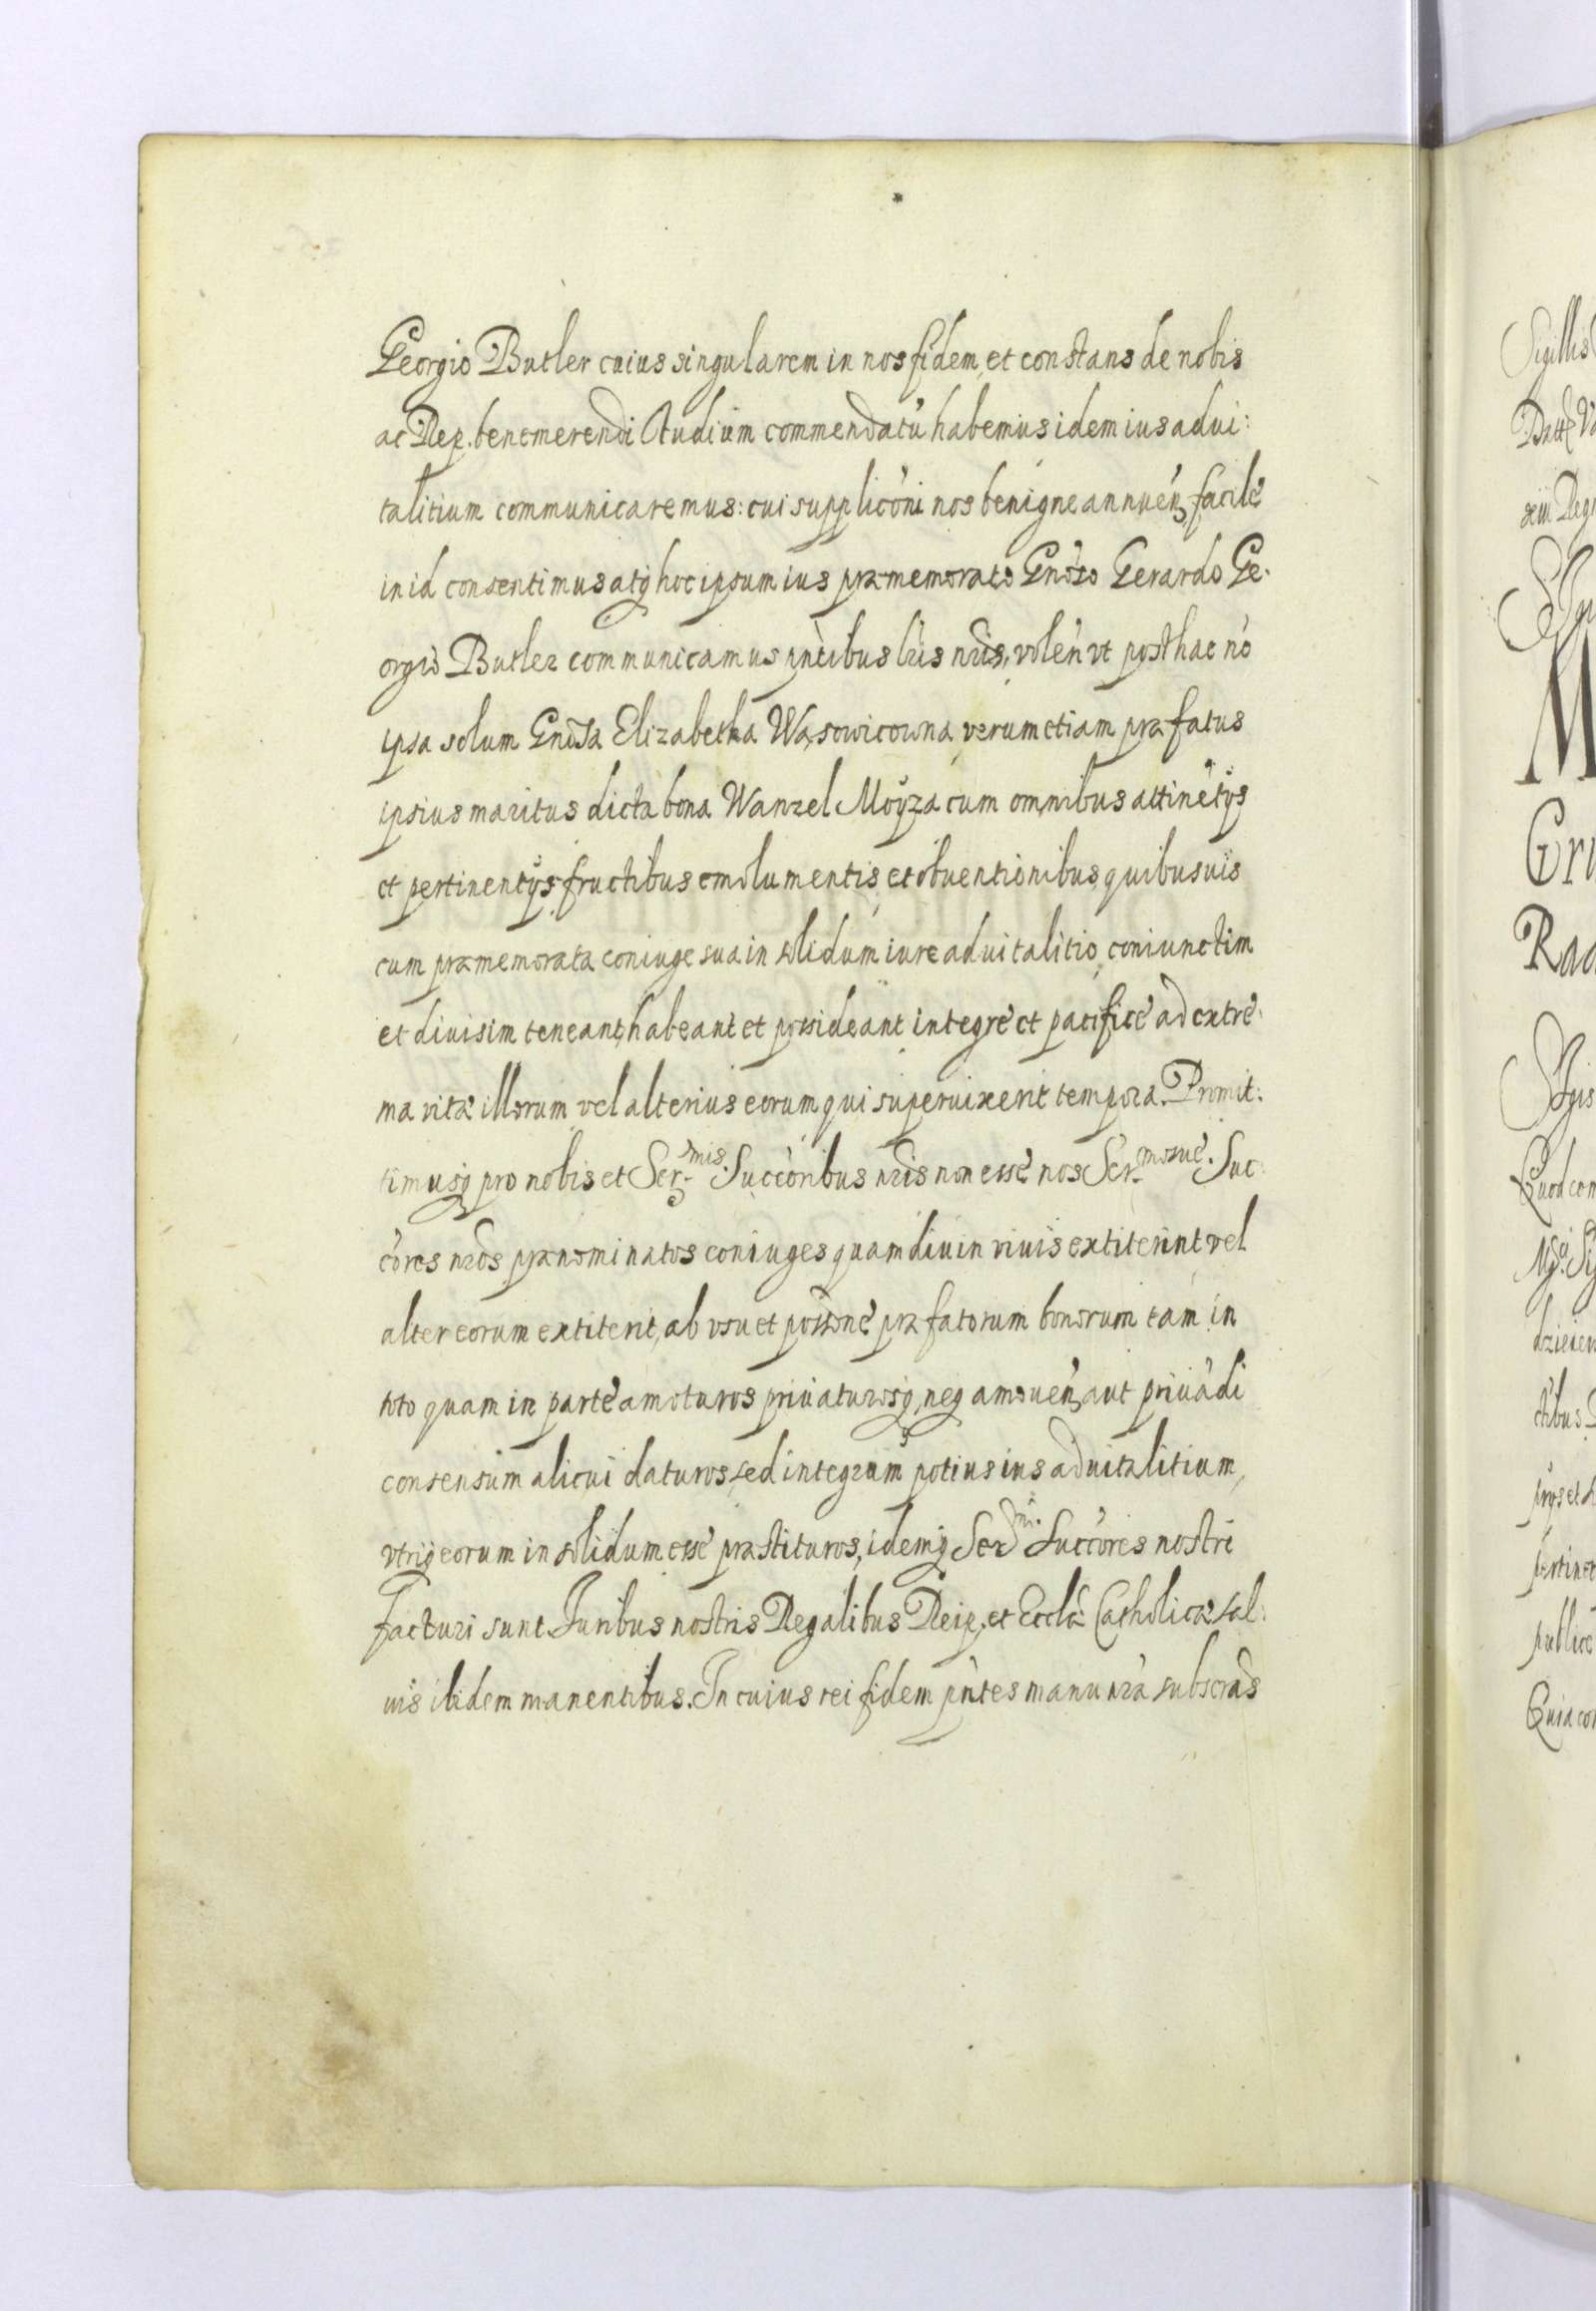 Georgio Butler cuius singularem in nos fidem, et constans de nobis
ac Rep. benemerendi studium commendatũ habemus idem ius advi:
talitium communicaremus: cui supplicõni nos benigne annuen̄, facile
in id consentimus atq hoc ipsum ius præmemorato Gnõso Gerardo Ge-
orgio Butler communicamus pn̄tibus lr̄is nr̄is, volen̄ vt posthac nõ
ipsa solum Gnõsa Elizabetha Wąsowicowna, verum etiam præfatus
ipsius maritus dicta bona Wanzel Moyza cum omnibus attinẽtÿs
et pertinentÿs, fructibus emolumentis, et obuentionibus, quibusuis
cum præmemorata coniuge sua in solidum iure aduitalitio, coniunctim
et diuisim teneant, habeant et possideant integre et pacifice ad extre:
ma vitæ illorum, vel alterius eorum qui superuixerit tempora. Promit:
timusq pro nobis et Ser.mis Succõribus nr̄is non esse nos Ser.mosue Suc:
cõres nr̄os prænominatos coniuges quamdiu in viuis extiterint, vel
alter eorum extiterit, ab vsu et possonẽ præfatorum bonorum tam in
toto quam in parte amoturos priuaturosq, neq amouen̄, aut priuãdi
consensum alicui daturos, sed integrum potius ius aduitalitium,
vtriq eorum in solidum esse præstituros, idemq Ser.mi Succõres nostri
facturi sunt. Juribus nostris Regalibus Reip. et Ecclæ Catholicæ sal:
uis ibidem manentibus. In cuius rei fidem pn̄tes manu nr̄a subscras
Sigillis
M
Gru
Rad
Quod com
ctibus
pertinet
publice
Quia con